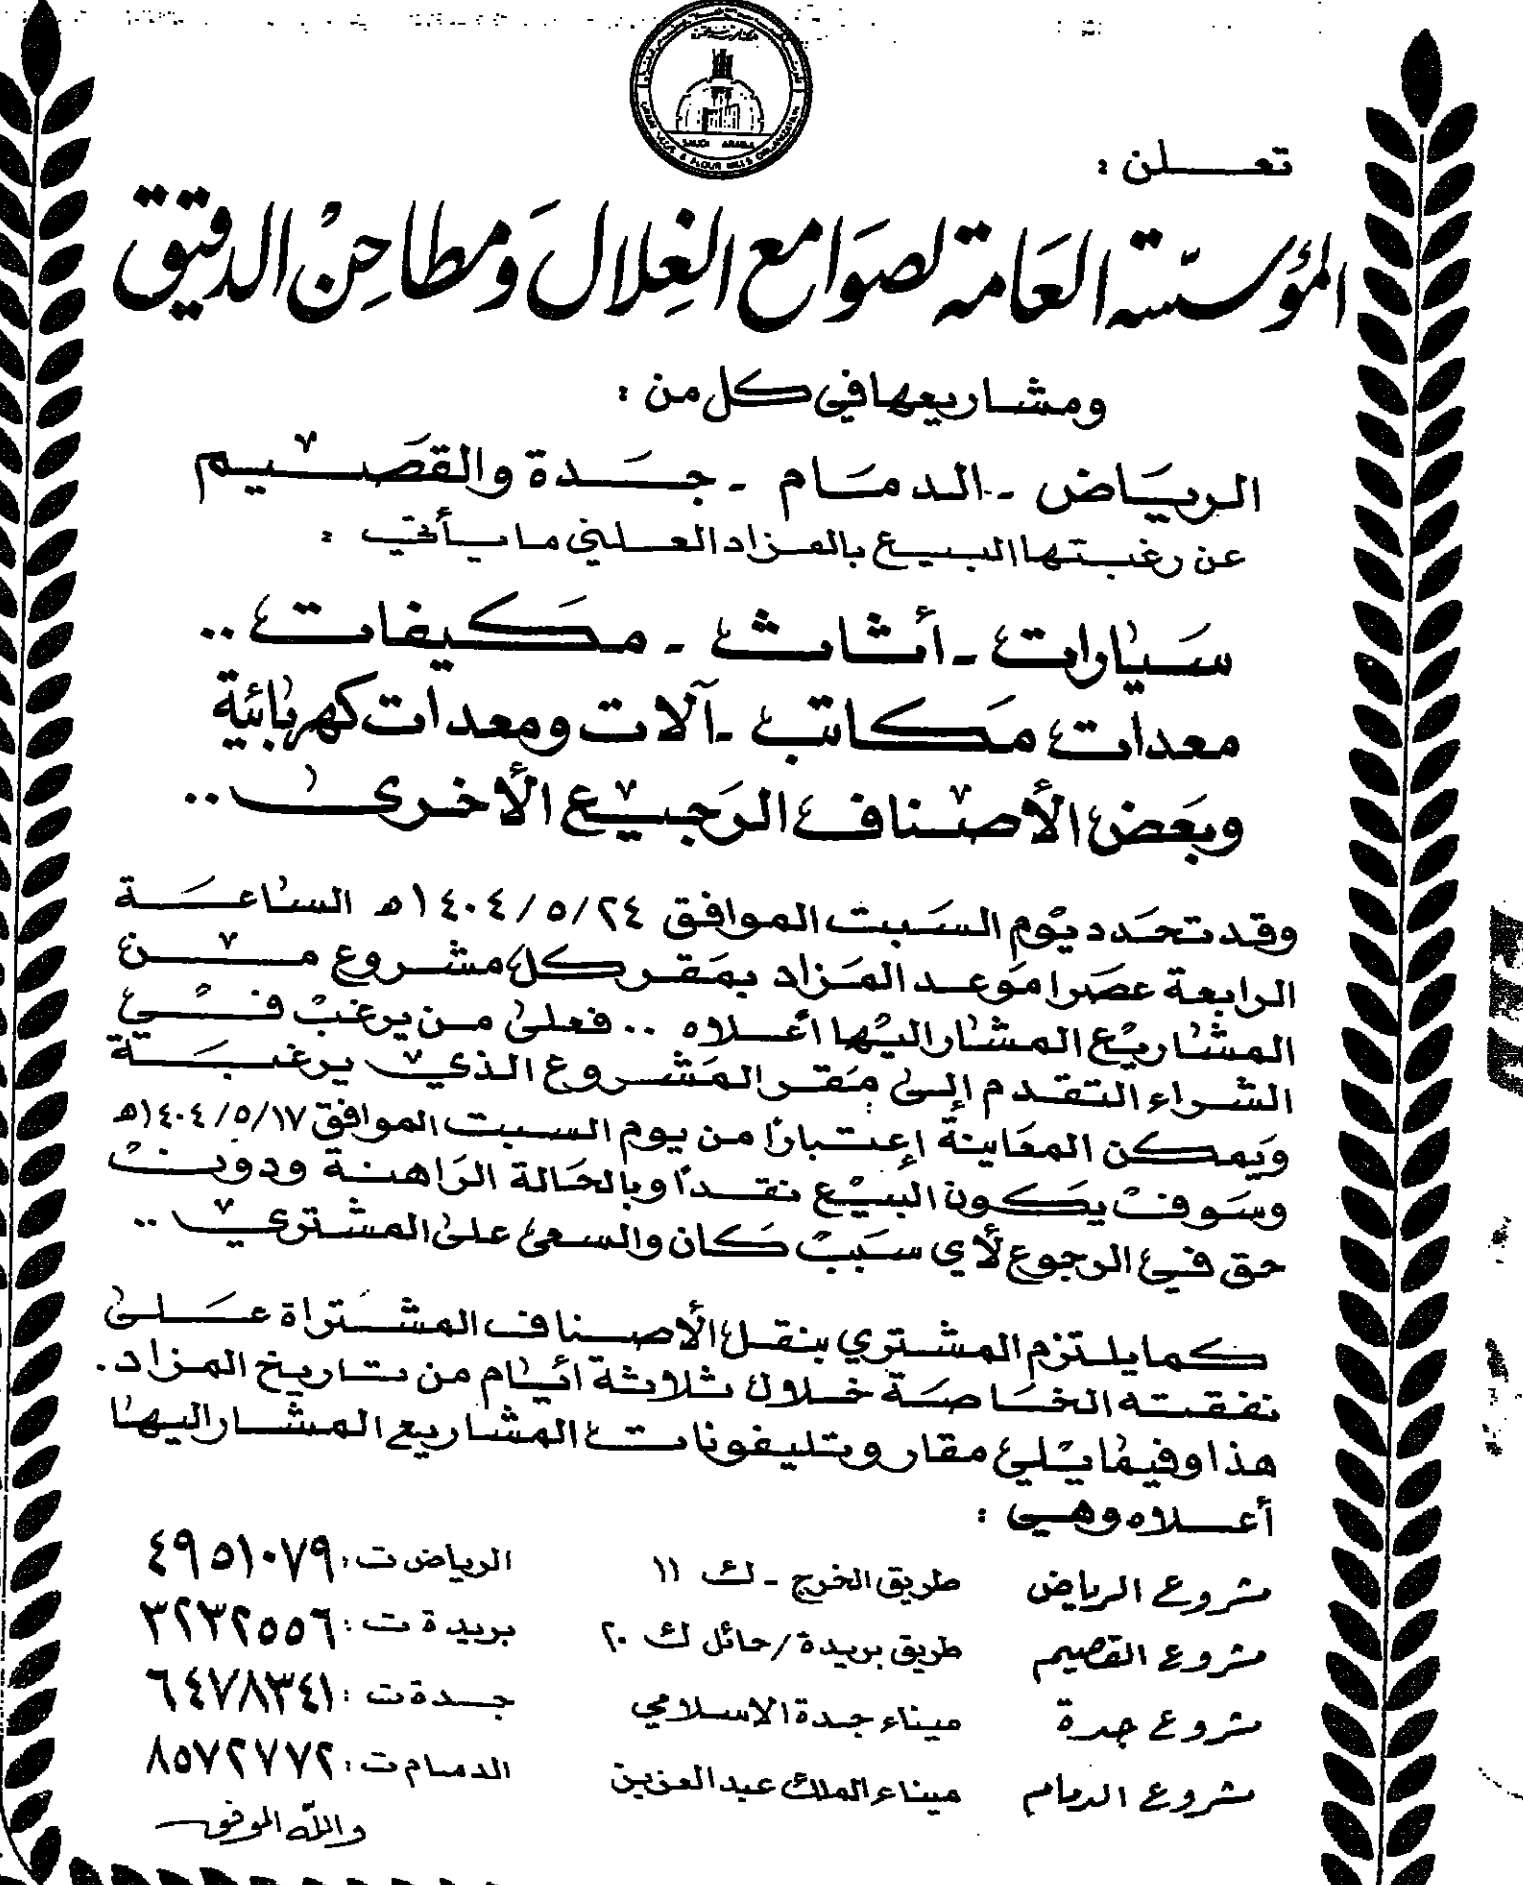 SAUDI ARABIA
تعلن :
المؤسسة العامة لصوامع الغلال ومطاحن الدقيق
ومشاريعها في كل من :
الرياض - الدمام - جدة والقصيم
عن رغبتها البيع بالمزاد العلني ما يأتي :
سيارات - أثاث - مكيفات ..
معدات مكاتب - آلات ومعدات كهربائية
وبعض الأصناف الرجيع الأخرى ..
وقد تحدد يوم السبت الموافق ١٤٠٤/٥/٢٤ه الساعة
الرابعة عصرا موعد المزاد بمقر كل مشروع من
المشاريع المشار اليها أعلاه .. فعلى من يرغب في
الشراء التقدم إلى مقر المشروع الذي يرغبه
ويمكن المعاينة إعتبارًا من يوم السبت الموافق ١٤٠٤/٥/١٧ه
وسوف يكون البيع نقدًا وبالحالة الراهنة ودون
حق في الرجوع لأي سبب كان والسعى على المشتري ..
كما يلتزم المشتري بنقل الأصناف المشتراة على
نفقته الخاصة خلال ثلاثة أيام من تاريخ المزاد .
هذا وفيما يلي مقار وتليفونات المشاريع المشار اليها
أعلاه وهي :
مشروع الرياض طريق الخرج - ك ١١ الرياض ت : ٤٩٥١٠٧٩
مشروع القصيم طريق بريدة / حائل ك ٢٠ بريدة ت : ٣٢٣٢٥٥٦
مشروع جدة ميناء جدة الاسلامي جدة ت : ٦٤٧٨٣٤١
مشروع الدمام ميناء الملك عبد العزيز الدمام ت : ٨٥٧٢٧٧٢
والله الموفق